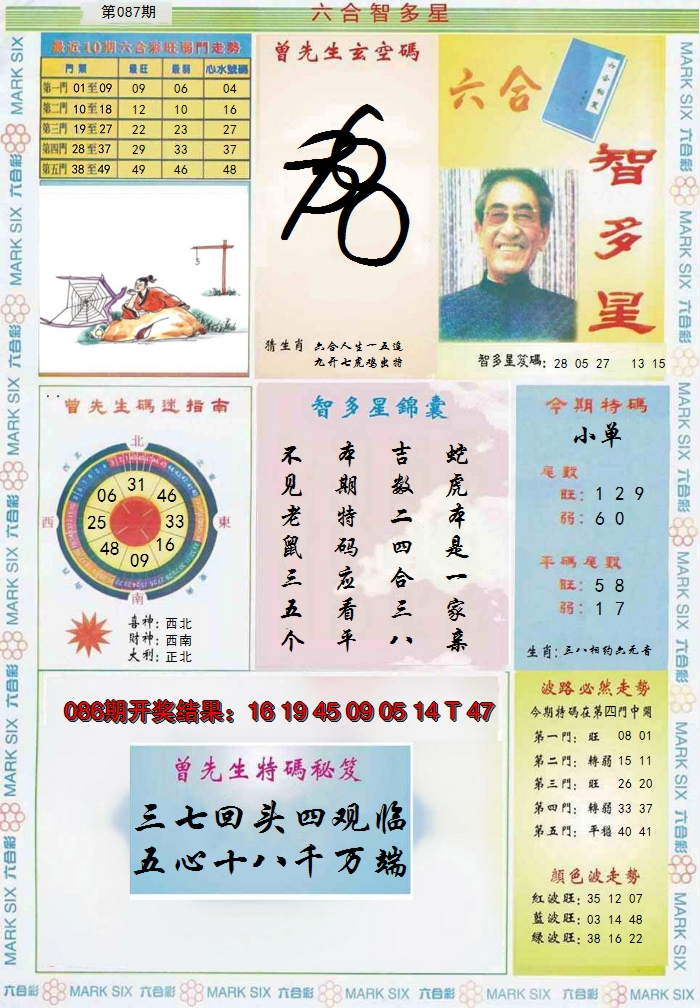 第087期
六合智多星
最近10期六合彩旺弱門走勢
門類 最旺 最弱 心水號碼
第一門 01至09 09 06 04
第二門 10至18 12 10 16
第三門 19至27 22 23 27
第四門 28至37 29 33 37
第五門 38至49 49 46 48
曾先生玄空碼
猜生肖 六合人生一五追
九开七虎鸡出特
六合
智多星
智多星笈碼: 28 05 27 13 15
曾先生碼迷指南
北
東
南
西
31
46
33
16
09
48
25
06
喜神: 西北
財神: 西南
大利: 正北
智多星錦囊
蛇虎本是一家亲
吉数二四合三八
本期特码应看平
不见老鼠三五个
今期特碼
小单
尾數
旺: 1 2 9
弱: 6 0
平碼尾數
旺: 5 8
弱: 1 7
生肖: 三八相约六元音
086期开奖结果: 16 19 45 09 05 14 T 47
曾先生特碼秘笈
三七回头四观临
五心十八千万端
波路必然走勢
今期特碼在第四門中開
第一門: 旺 08 01
第二門: 轉弱 15 11
第三門: 旺 26 20
第四門: 轉弱 33 37
第五門: 平穩 40 41
顏色波走勢
紅波旺: 35 12 07
藍波旺: 03 14 48
綠波旺: 38 16 22
六合彩 MARK SIX 六合彩 MARK SIX 六合彩 MARK SIX 六合彩 MARK SIX 六合彩